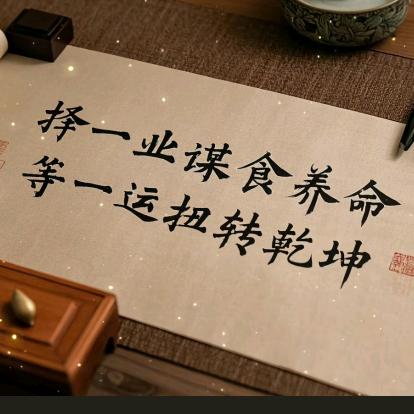 择一业谋食养命
等一运扭转乾坤